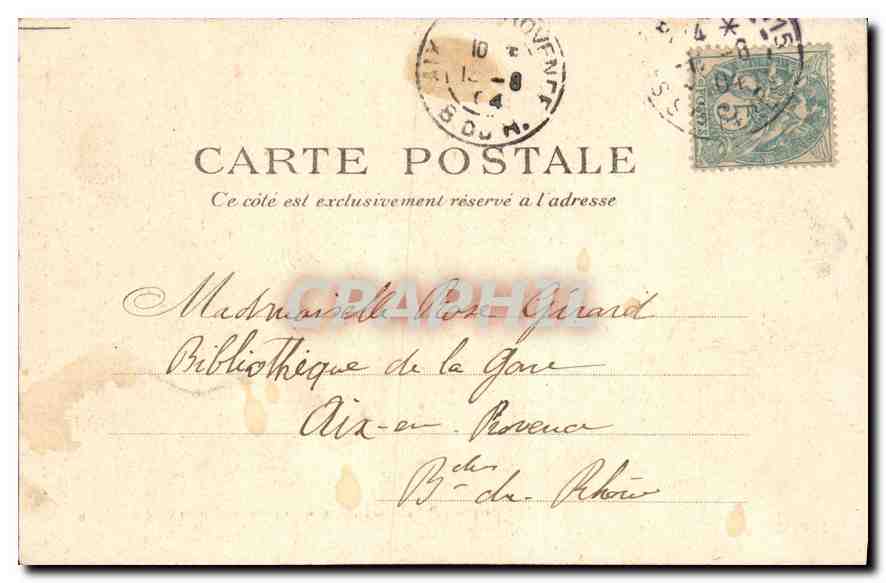 AIX PROVENCE
10
8
04
B DU R.
4 *
15
8
04
5
CARTE POSTALE
Ce côté est exclusivement réservé à l'adresse
CPARHIL
Mademoiselle Rose Girard
Bibliothèque de la Gare
Aix-en-Provence
Bches du Rhône